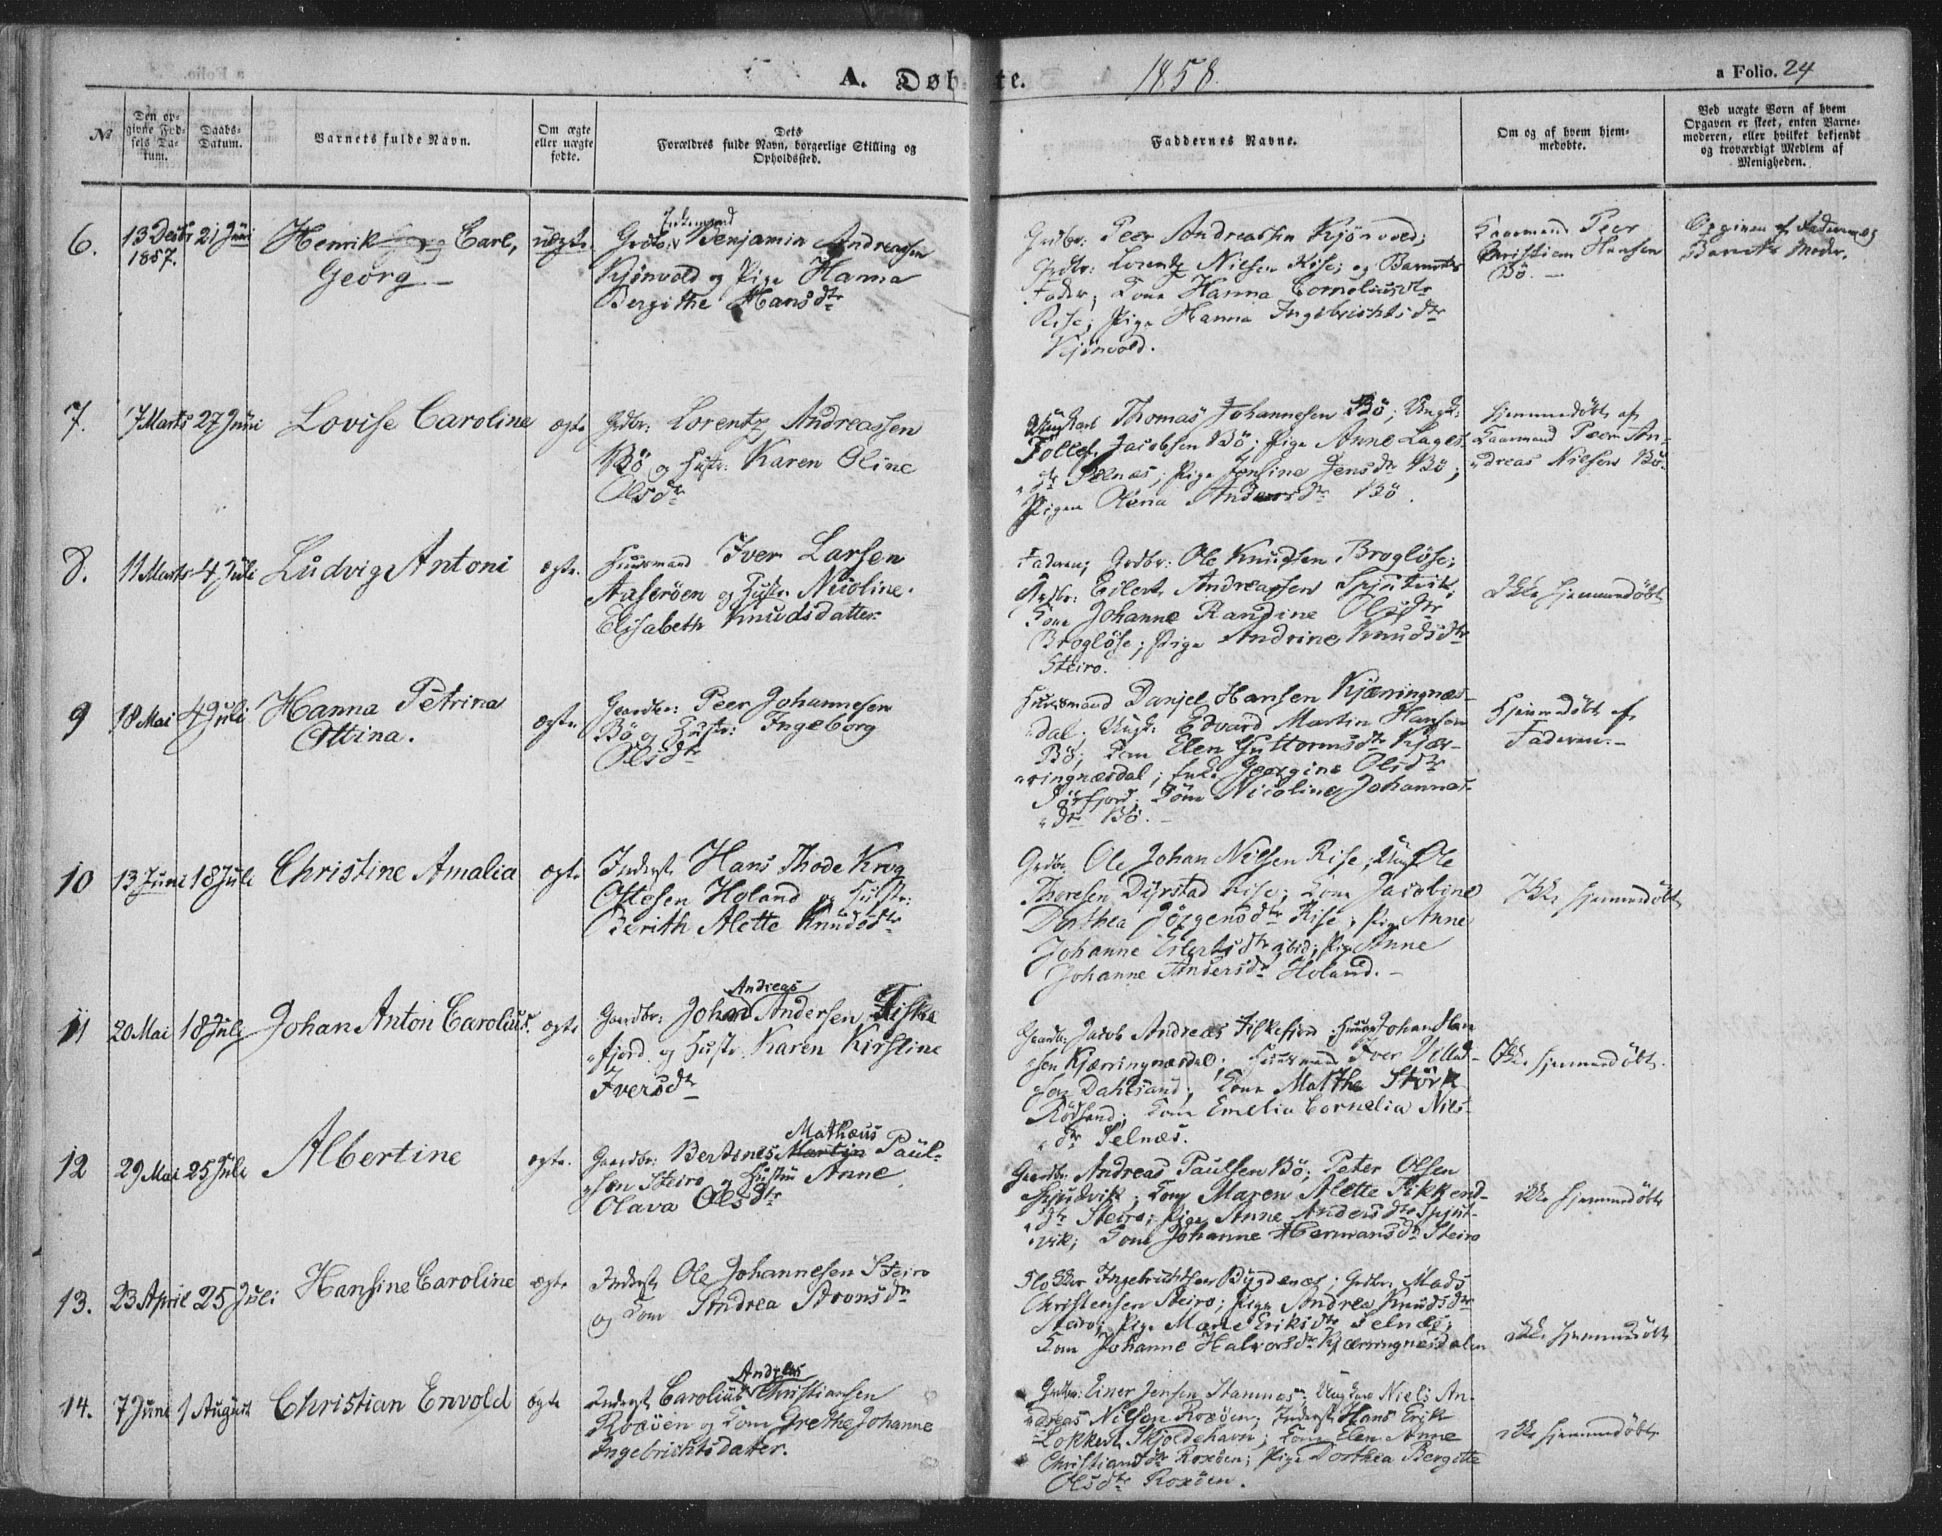 A. Døbte. 1858.
a Folio. 24
No
Den op-
givne Fød-
sels Da-
tum.
Daabs-
Datum.
Barnets fulde Navn.
Om ægte
eller uægte
fødte.
Dets
Forældres fulde Navn, borgerlige Stilling og
Opholdssted.
Faddernes Navne.
Om og af hvem hjem-
medøbte.
Ved uægte Børn af hvem
Opgaven er skeet, enten Barne-
moderen, eller hvilket bekjendt
og troværdigt Medlem af
Menigheden.
6.
13 Decbr
1857.
21 Juni
Henrik Carl,
Georg
uægte
Enkemand
Grdbr. Benjamin Andreassen
Kjönvold og Pige Hanna
Bergithe Hansdtr
Grdbr: Peer Andreassen Kjönvold;
Grdbr: Lorentz Nilsen Rise; og Barnets
Fader; Kone Hanna Corneliusdtr
Rise; Pige Hanna Ingebrichtsdtr
Kjönvold.
Kaarmand Peer
Christian Hansen
Bö.
Opgiven af Faderen og
Barnets Moder.
7.
7 Marts
27 Juni
Lovise Caroline
ægte
Grdbr: Lorentz Andreassen
Bö og Hustr: Karen Oline
Olsdtr
Ungkarl Thomas Johannesen Bö; Ungk:
Tollef Jacobsen Bö; Pige Anne Lages-
dtr Selnæs; Pige Jensine Jensdtr Bö;
Pigen Olena Andersdtr Bö.
Hjemmedöbt af
Kaarmand Peer An-
dreas Nilsen Bö.
8.
11 Marts
4 Juli
Ludvig Antoni
ægte.
Huusmand Iver Larsen
Aaseröen og Hustr. Nicoline
Elisabeth Knudsdatter
Faderen; Grdbr: Ole Knudsen Broglöse;
Grdbr: Eilert Andreassen Spjutvik;
Kone Johanne Randine Olsdtr
Broglöse; Pige Andrine Knudsdtr
Steiro.
Ikke hjemmedöbt
9
18 Mai
4 Juli
Hanna Petrina
Ottina.
ægte
Gaardbr: Peer Johannesen
Bö og Hustr: Ingeborg
Olsdtr
Huusmand Danjel Hansen Kjærringnæs-
dal; Ungk: Edvard Martin Hansen
Bö; Kone Elen Guttormsdtr Kjær-
ringnæsdal; Enke Georgine Olsdtr
Kone Nicoline Johannes-
dtr Bö.
Hjemmedöbt af
Faderen.
10
13 Juni
18 Juli
Christine Amalia
ægte
Inderst Hans Thode Krog
Ottesen Holand og Hustr:
Berith Alette Knudsdtr
Grdbr. Ole Johan Nilsen Rise; Ungk Ole
Thoresen Dyrstad Rise; Kone Jacobine
Dorthea Jörgensdtr Rise; Pige Anne
Johanne Eilertsdtr ibid; Pige Anne
Johanne Andersdtr Holand.
Ikke hjemmedöbt
11
20 Mai
18 Juli
Johan Anton Carolius.
ægte
Andreas
Gaardbr: Johan Andersen Fiske
fjord og Hustr. Karen Kirstine
Iversdtr
Gaardbr Jacob Andreas Fiskefjord; Huusm Johan Han
sen Kjærringnæsdal; Huusmand Iver Villad-
sen Dahlsand; Kone Malthe Störk
Rödsand; Kone Emelia Cornelia Nils-
dtr Selnæs.
Ikke hjemmedöbt.
12
29 Mai
25 Juli
Albertine
ægte.
Mathæus
Gaardbr: Bertines Martin Paul-
sen Steiro og Hustru Anne
Olava Olsdtr
Gaardbr Andreas Paulsen Bö; Peter Olsen
Spjudvik; Kone Maren Alette Fikkend-
dtr Steiro; Pige Anne Andersdtr Spjut-
vik; Kone Johanne Hermansdtr Steiro
ikke hjemmedöbt
13.
23 April
25 Juli
Hansine Caroline
ægte
Inderst Ole Johannesen Steiro
og Kone Andrea Aronsdtr
Klokker Ingebrichtsen Bygdenæs; Grdbr: Mads
Christensen Steiro; Pige Andrea Knudsdtr
Steiro; Pige Marie Eriksdtr Selnæs;
Kone Johanne Halvorsdtr Kjærringnesdalen
ikke hjemmedöbt
14.
7 Juni
1 August
Christian Envold
ægte
Andreas
Inderst Carolius Christiansen
Roxöen og Kone Grethe Johanne
Ingebrichtsdatter.
Grdbr: Einer Jensen Stamnes; Ungkarl Niels An-
dreas Nilsen Roxöen; Inderst Hans Erik
Lokkert Skjoldehavn; Kone Elen Anne
Christiansdtr Roxöen; Pige Dorthea Bergitte
Olsdtr Roxöen.
ikke hjemmedöbt